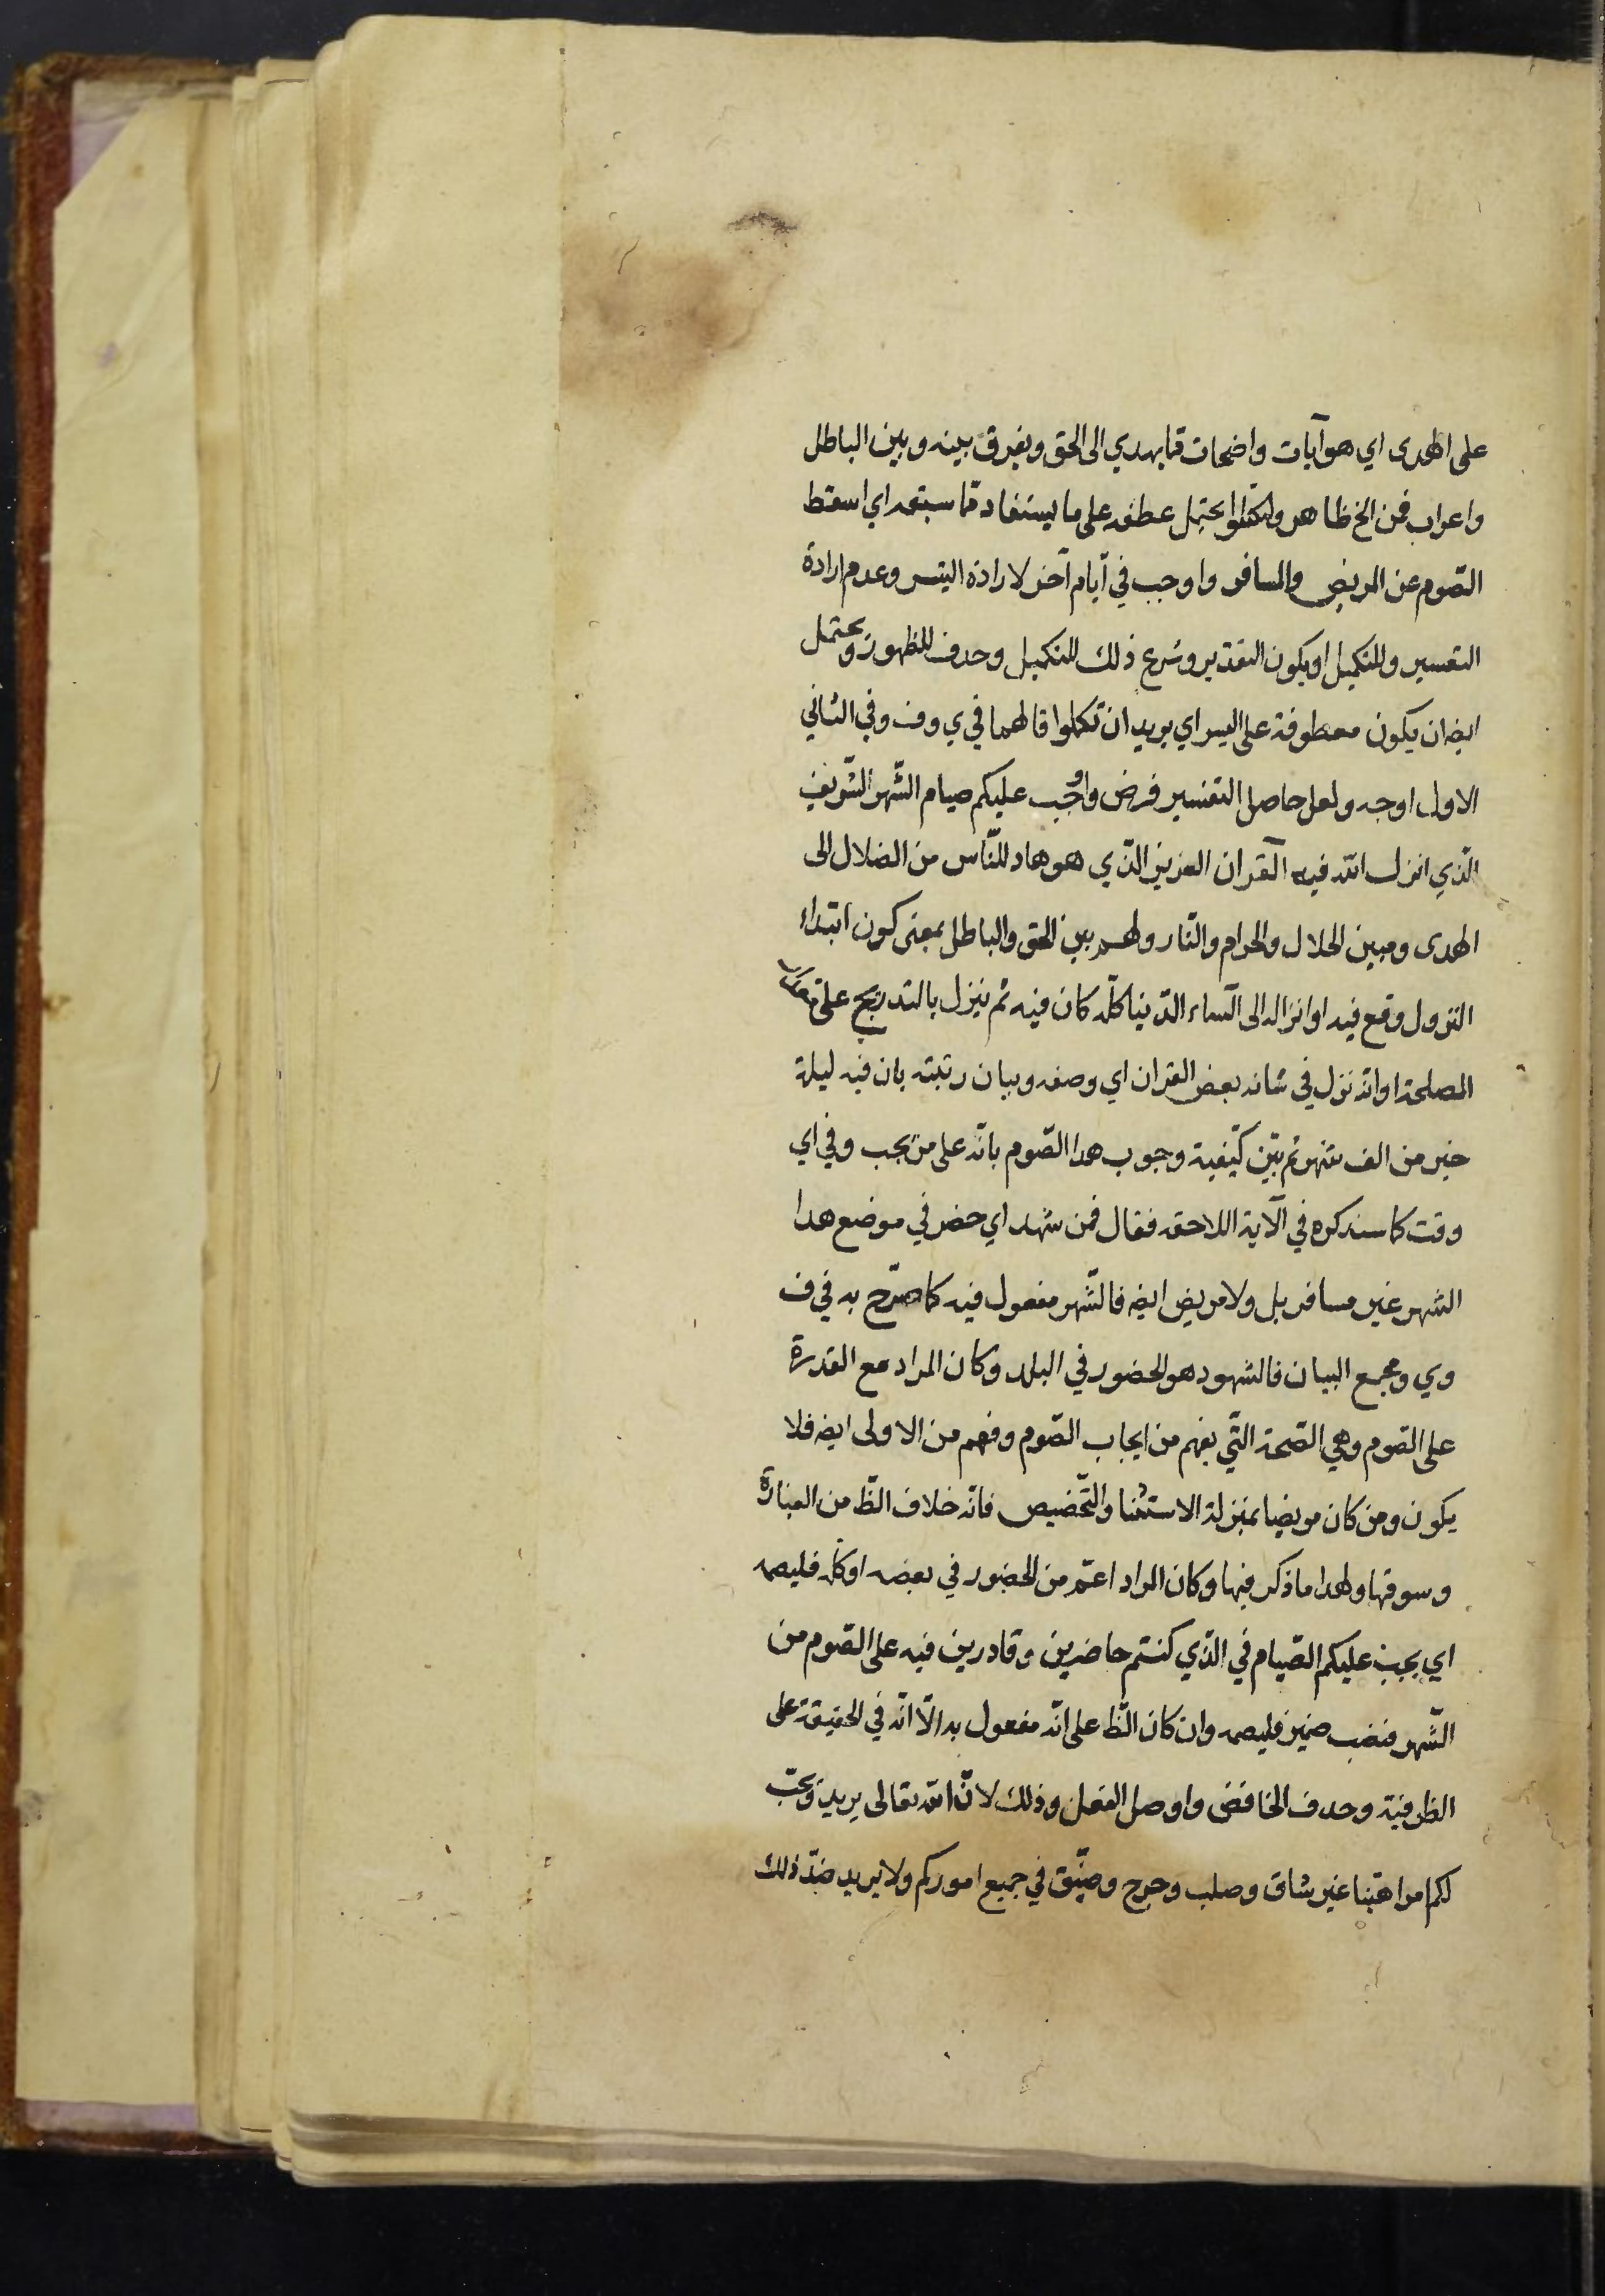 على الهدى اي هو آيات واضحات مما يهدي الى الحق ويفرق بينه وبين الباطل
واعراب فمن الخ ظاهر ولتكملوا يحتمل عطفه على ما يستفاد مما سبقه اي اسقط
الصّوم عن المريض والمسافر واوجب في أيام أخر لارادة اليسر وعدم ارادة
التعسير وللتكميل او يكون التقدير وشرع ذلك للتكميل وحذف للظهور ويحتمل
ايضه ان يكون معطوفة على اليسر اي يريد ان تكملوا قالهما في ي وف وفي الثاني
الاول اوجه ولعل حاصل التفسير فرض واوجب عليكم صيام الشّهر الشّريف
الّذي انزل الله فيه القرآن العزيز الّذي هو هاد للنّاس من الضلال الى
الهدى ومبين الحلال والحرام والنّار ولهم بين الحق والباطل بمعنى كون ابتداء
النزول وقع فيه او انزاله الى السّماء الدّنيا كلّه كان فيه ثم ينزل بالتدريج على
المصلحة او انّه نزل في شانه بعض القران اي وصفه وبيان رتبته بان فيه ليلة
خير من الف شهر ثم بيّن كيّفية وجوب هذا الصّوم بانّه على من يجب وفي اي
وقت كما سنذكره في الآية اللاحقه فقال فمن شهد اي حضر في موضع هذا
الشهر غير مسافر بل ولا مريض ايضه فالشّهر مفعول فيه كما صرّح به في ف
وي ومجمع البيان فالشهود هو الحضور في البلد وكان المراد مع القدرة
على الصّوم وهي الصّحة الّتي يفهم من ايجاب الصّوم وفهم من الاولى ايضه فلا
يكون ومن كان مريضا بمنزلة الاستثنا والتّخصيص فانّه خلاف الظّ من العبارة
وسوقها ولهذا ما ذكر فيها وكان المراد اعمّ من الحضور في بعضه او كلّه فليصمه
اي يجب عليكم الصّيام في الّذي كنتم حاضرين وقادرين فيه على الصّوم من
الشّهر فنصب ضمير فليصمه وان كان الظّ على انّه مفعول به الّا انّه في الحقيقة على
الظرفية وحذف الخافض واوصل الفعل وذلك لانّ الله تعالى يريد ويحبّ
لكم امرا هيّنا غير شاق وصلب وحرج وضيّق في جميع اموركم ولا يريد ضدّ ذلك